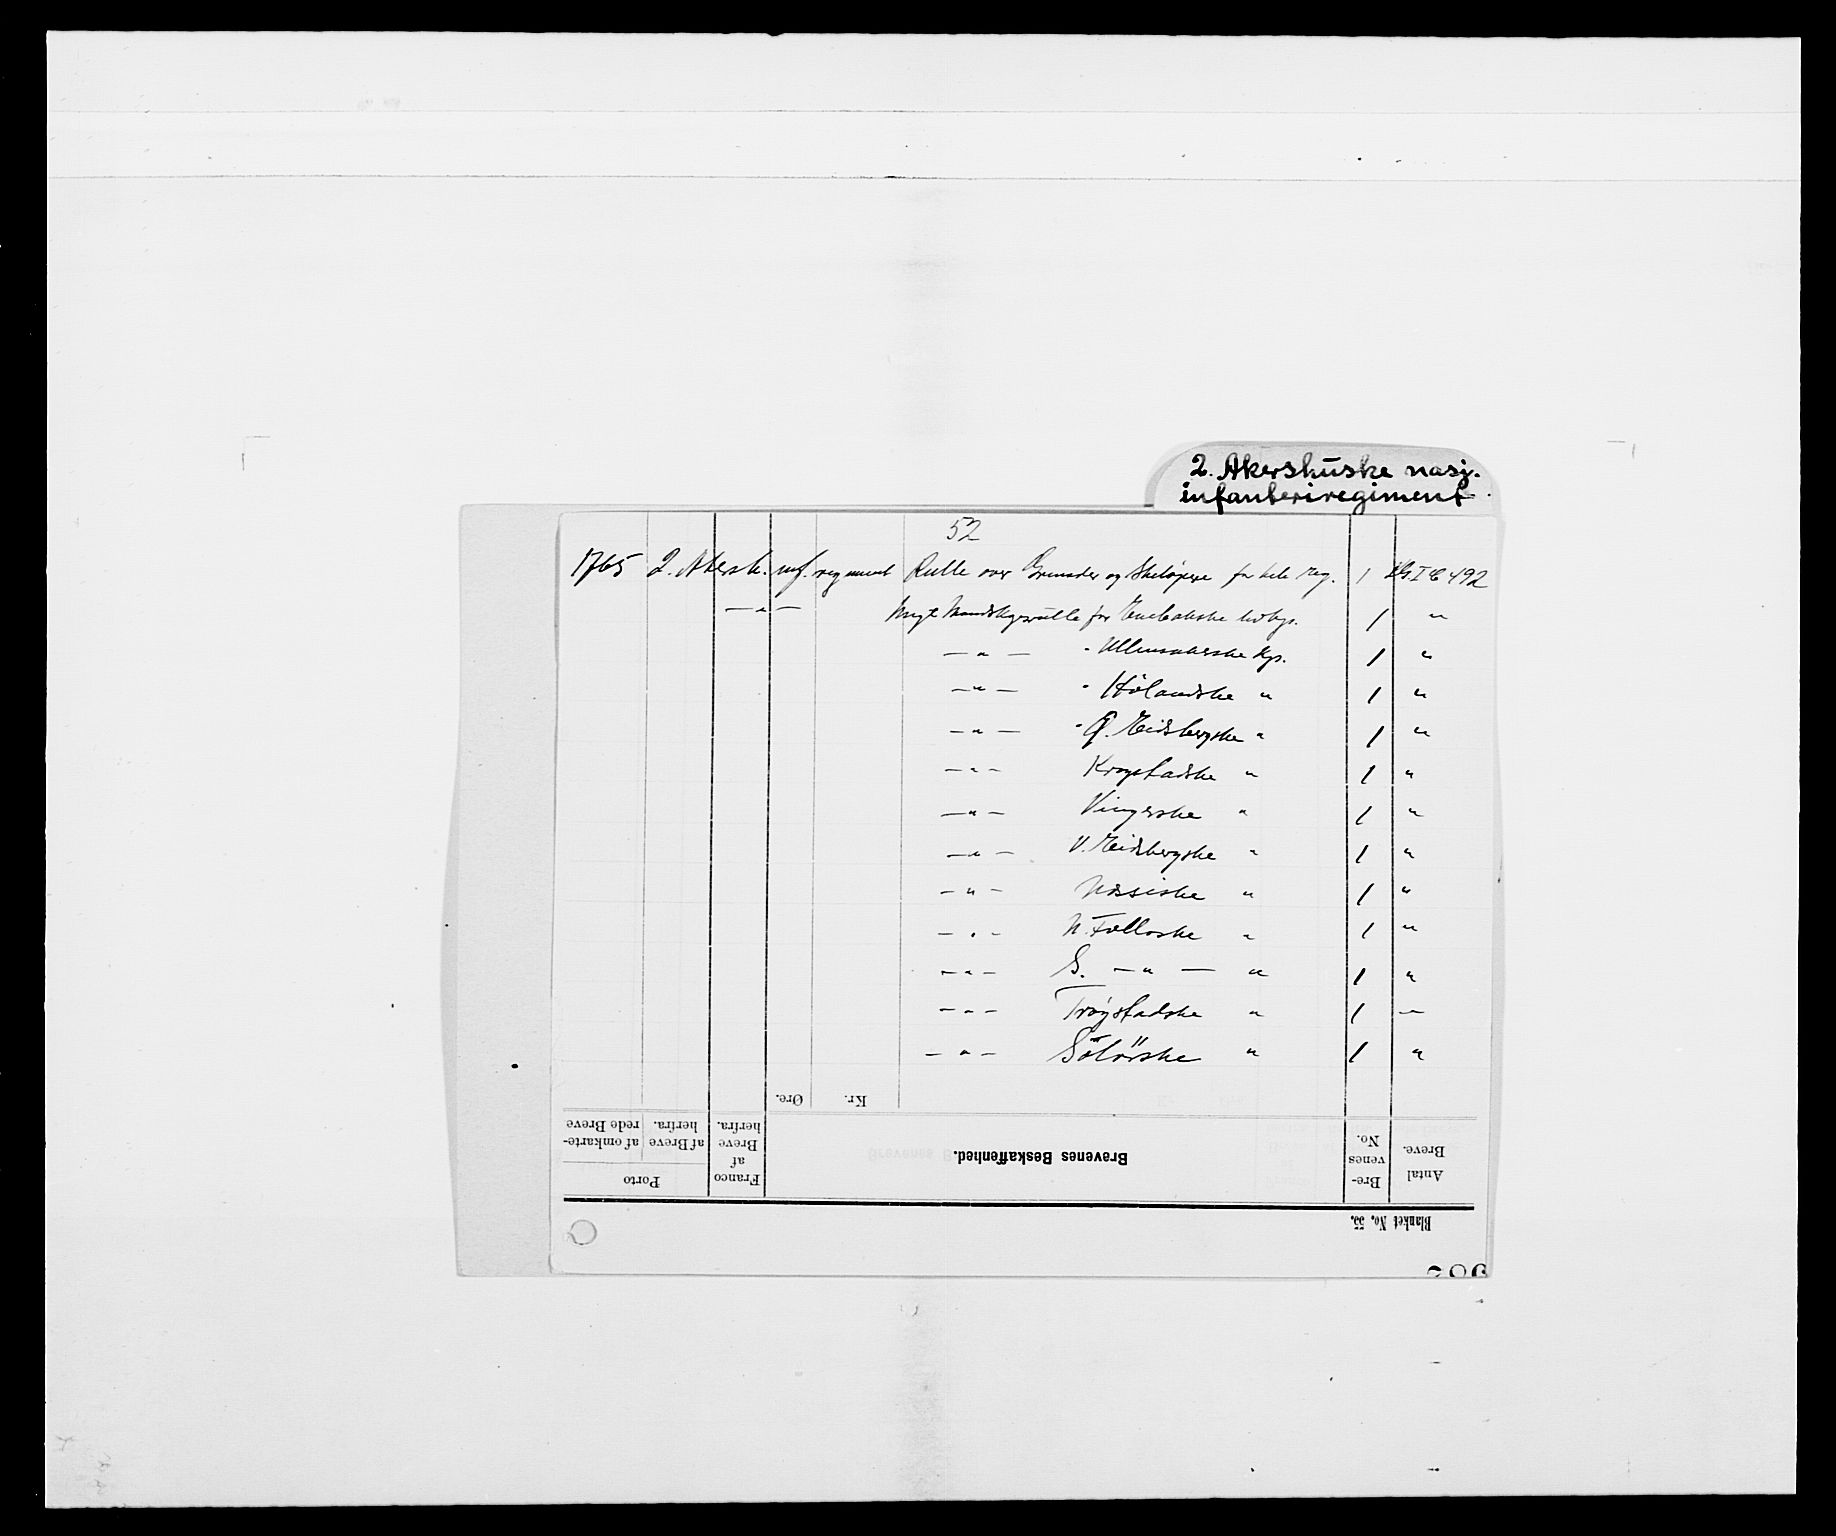 2. Akershuske nasj.
infanteriregiment
52
1765 2. Akersh. inf. regiment Rulle over Grenader og Skeløpere for hele Reg. 1 DGIE 492
— " — Mandskapsrulle for Enebakske livkp. 1 "
— " — " Ullensakerske Kp. 1 "
— " — " Hølandske " 1 "
— " — " Ø. Eidsbergske " 1 "
— " — Krogstadske " 1 "
— " — Vingerske " 1 "
— " — V. Eidsbergske " 1 "
— " — Næssiske " 1 "
— " — N. Folloske " 1 "
— " — S. — " — " 1 "
— " — Trøgstadske " 1 "
— " — Solørske " 1 "
Blanket No. 55.
Antal Breve.
Brevenes No.
Brevenes Beskaffenhed.
Franco af Breve herfra.
Porto
af Breve herfra.
af omkarterede Breve
Kr. Øre.